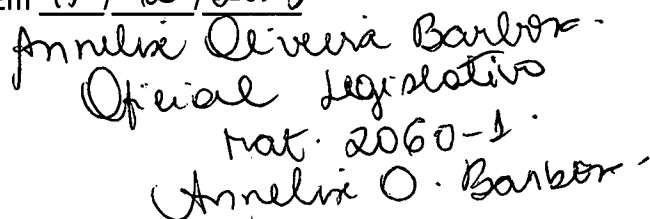 Em
Annelise Oliveira Barbosa.
Oficial Legislativo
Mat. 2060-1.
Annelise O. Barbosa.